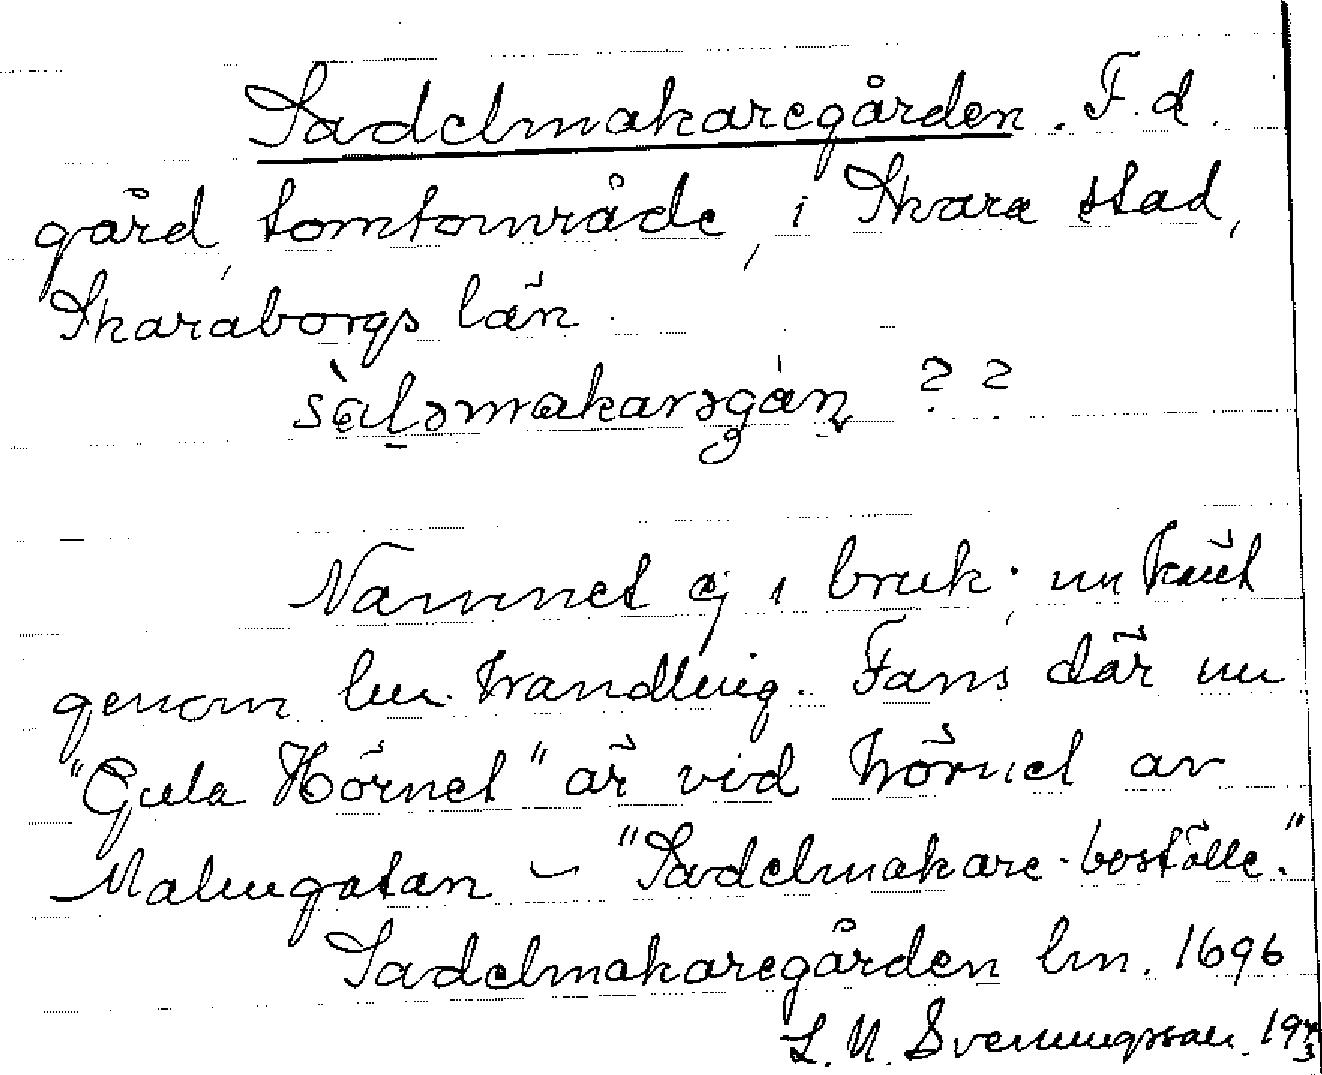 Sadelmakaregården. F. d.
gård, tomtområde, i Skara stad,
Skaraborgs län.
sàlmakarəgáṇ ??
Namnet ej i bruk; nu känt
genom lm. handling. Fanns där nu
"Gula Hörnet" är vid hörnet av
Malmgatan – "Sadelmakare-boställe."
Sadelmakaregården lm. 1696
L. N. Svenungsson.